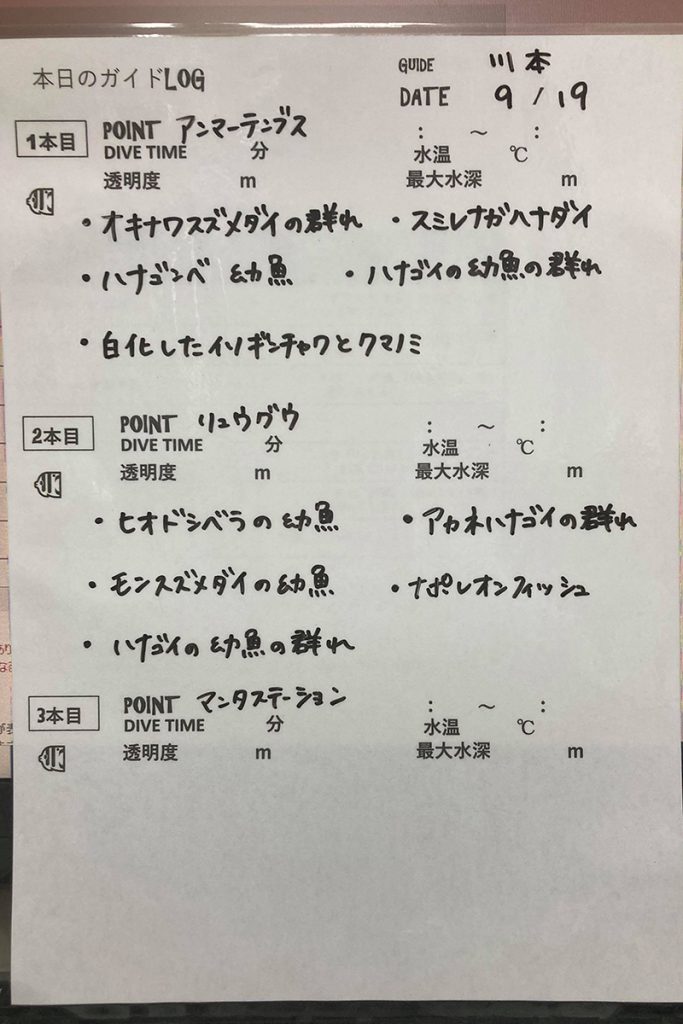 本日のガイドLOG
GUIDE 川本
DATE 9/19
1本目 POINT アンマーテンブス : ～ :
DIVE TIME 分 水温 ℃
透明度 m 最大水深 m
・オキナワスズメダイの群れ ・スミレナガハナダイ
・ハナゴンベ 幼魚 ・ハナゴイの幼魚の群れ
・白化したイソギンチャクとクマノミ
2本目 POINT リュウグウ : ～ :
DIVE TIME 分 水温 ℃
透明度 m 最大水深 m
・ヒオドシベラの幼魚 ・アカネハナゴイの群れ
・モンスズメダイの幼魚 ・ナポレオンフィッシュ
・ハナゴイの幼魚の群れ
3本目 POINT マンタステーション : ～ :
DIVE TIME 分 水温 ℃
透明度 m 最大水深 m